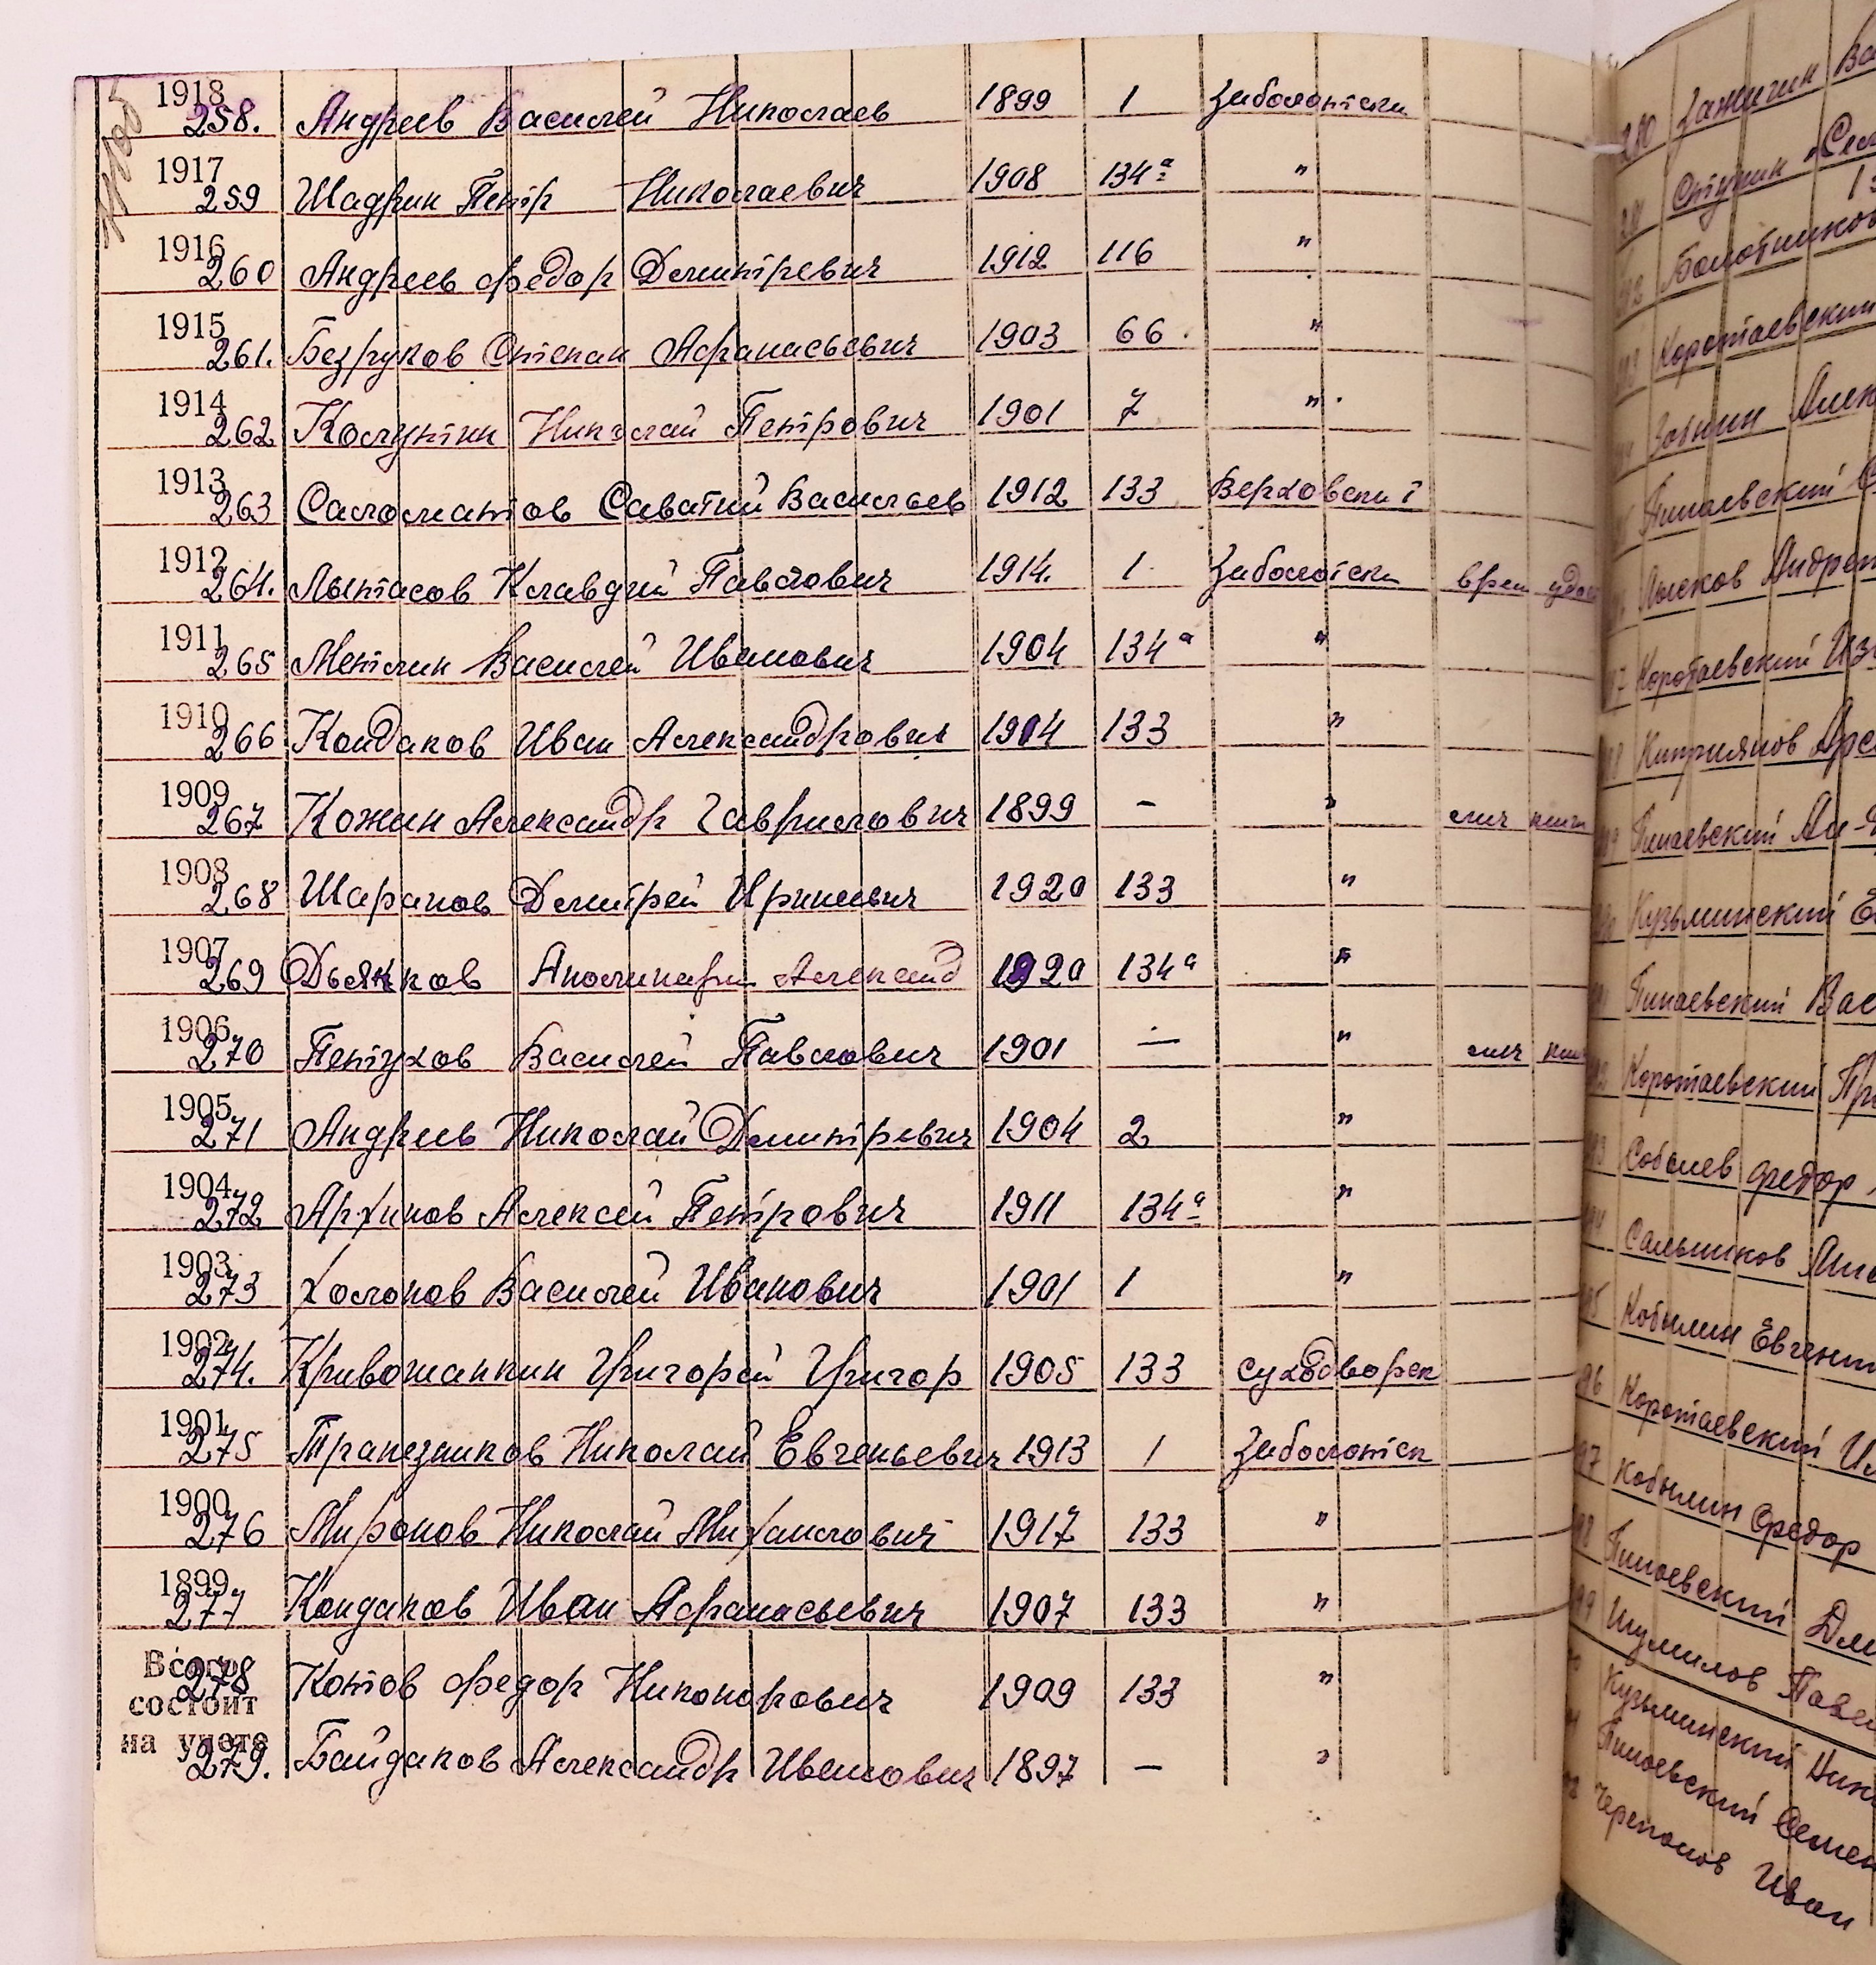 1918 258. Андреев Василей Николаев 1899 1 Заболотски
1917 259 Шадрин Петр Николаевич 1908 134а "
1916 260 Андреев Федор Демитревич 1912 116 "
1915 261. Безруков Степан Афанасьевич 1903 66 "
1914 262 Колупкин Николай Петрович 1901 7 "
1913 263 Саломатов Саватий Васильев 1912 133 Верховски
1912 264. Лыткасов Клавдий Павлович 1914. 1 Заболотски врем
1911 265 Метлин Василей Иванович 1904 134а "
1910 266 Кондаков Иван Александрович 1904 133 "
1909 267 Кожин Александр Гаврилович 1899 — "
1908 268 Шарапов Демитрей 1920 133 "
1907 269 Дьяков Аполинари Александ 1920 134а "
1906 270 Петухов Василей Павлович 1901 — "
1905 271 Андреев Николай Демитревич 1904 2 "
1904 272 Архипов Алексей Петрович 1911 134а "
1903 273 Холопов Василей Иванович 1901 1 "
1902 274. Кривошапкин Григорей Григор 1905 133 суходворск
1901 275 Трапезников Николай Евгеньевич 1913 1 Заболотск
1900 276 Миронов Николай Михаилович 1917 133 "
1899 277 Кондаков Иван Афанасьевич 1907 133 "
Всего состоит на учете
278 Котов Федор Никонорович 1909 133 "
279. Байдаков Александр Иванович 1897 — "
280 Зажигин Ва
Ступин Сем
Болотников
Коротаевский
Зовнин Алек
Пинаевский
Лысков Андре
Коротаевский Из
Киприянов Арс
Пинаевский Ал
Кузьминский Е
Пинаевский Вас
Коротаевский Пр
Соболев Федор
Сальников
Кобылин Евгени
Коротаевский И
Кобылин Федор
Пинаевский Дм
Шумилов Павел
Кузьминский Ник
Пинаевский Семен
Черепанов Иван